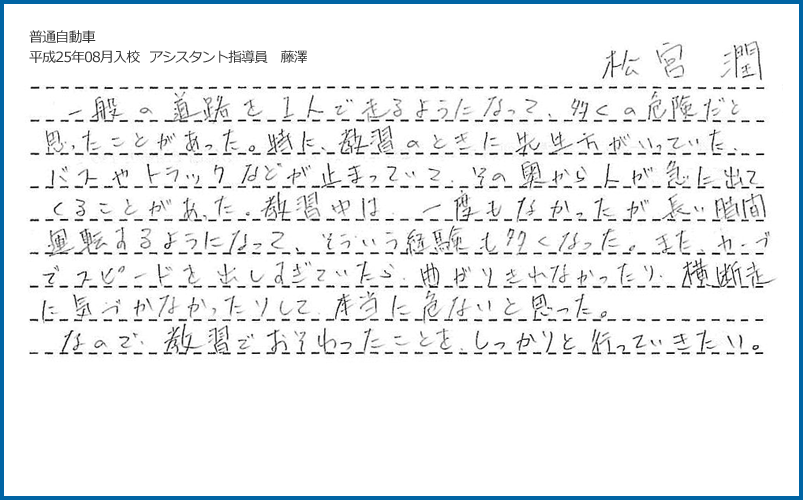 普通自動車
平成25年08月入校 アシスタント指導員 藤澤
松宮 潤
一般の道路を1人で走るようになって、多くの危険だと
思ったことがあった。特に、教習のときに先生方がいっていた、
バスやトラックなどが止まっていて、その奥から人が急に出て
くることがあった。教習中は、一度もなかったが長い時間
運転するようになって、そういう経験も多くなった。また、カーブ
でスピードを出しすぎていたら、曲がりきれなかったり、横断歩
に気づかなかったりして、本当に危ないと思った。
なので、教習でおそわったことを、しっかりと行っていきたい。